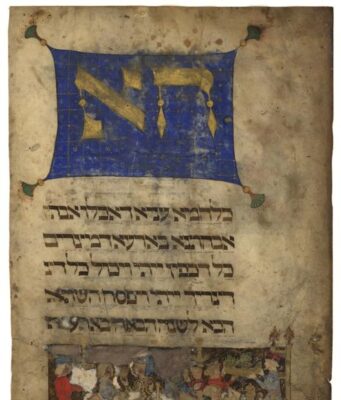 הא
כלחמא עניא דאכלו אבה
אבהתנא בארעא דמצרים
כל דכפין ייתי ויכול כל
דצריך ייתי ויפסח השתא
הכא לשנה הבאה בארעא